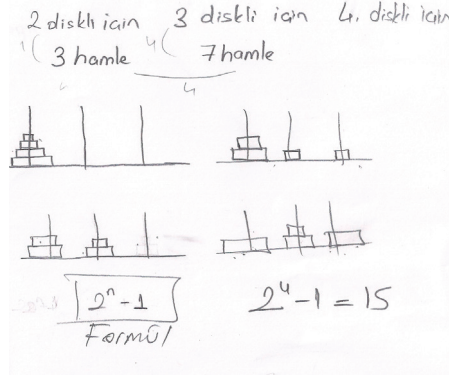 2 diskli için 3 diskli için 4. diskli için
3 hamle 4 7 hamle
4
2ⁿ-1 2⁴-1=15
Formül